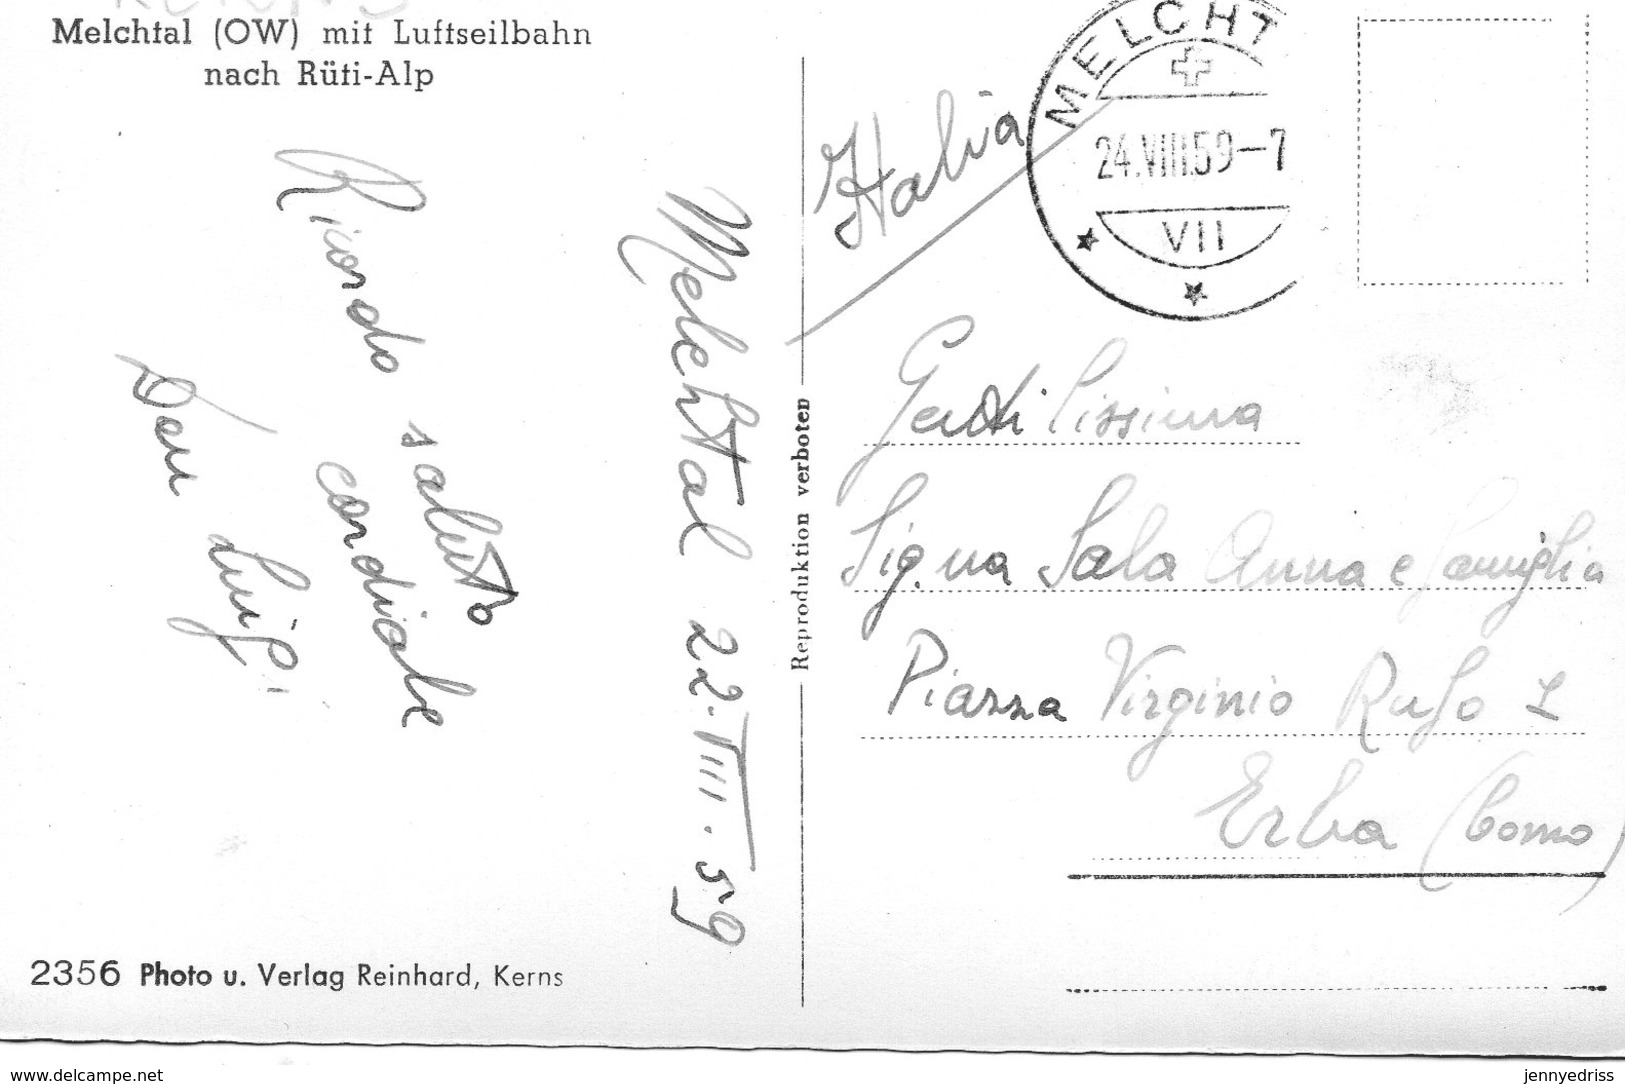 Melchtal (OW) mit Luftseilbahn
nach Rüti-Alp
Ricordo saluto
cordiale
Don Luigi
Melchtal 22.VIII.59
Reproduktion verboten
Italia
MELCHT
24.VIII.59-7
VII
Gentilissima
Sig.na Sala Anna e famiglia
Piazza Virginio Rufo 1
Erba (Como)
2356 Photo u. Verlag Reinhard, Kerns
www.delcampe.net
jennyedriss